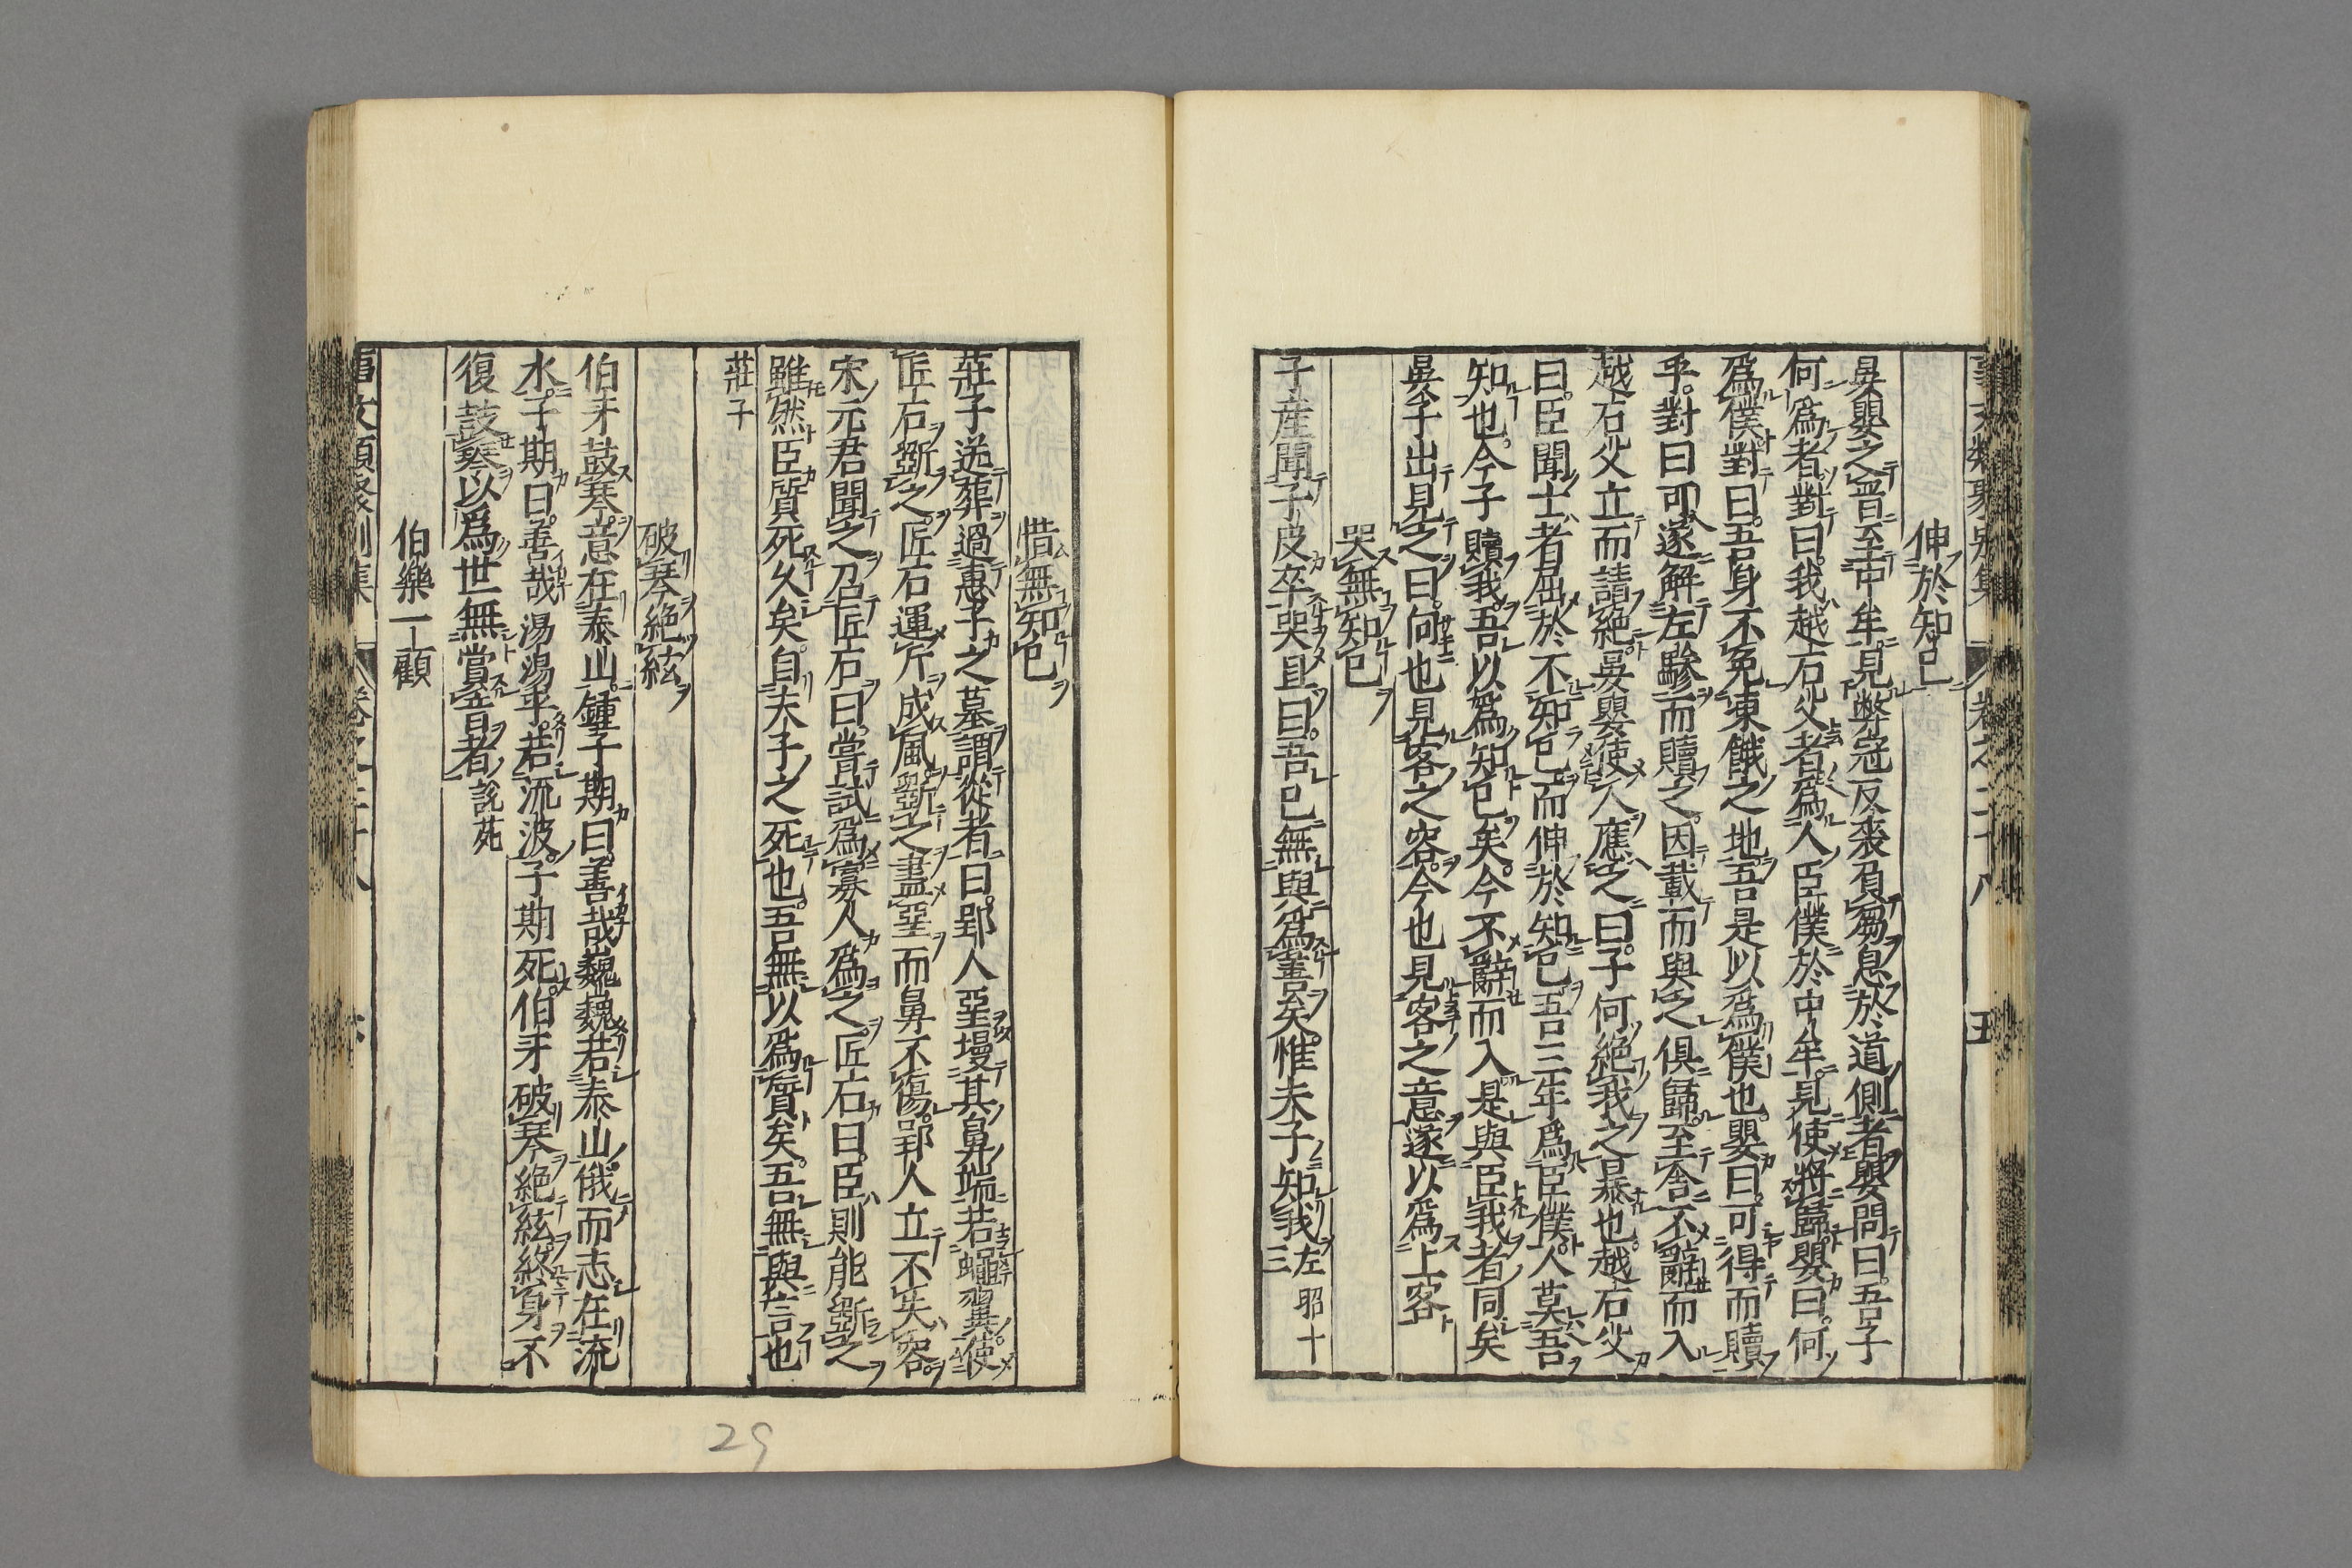 伸於知己
晏嬰之晉至中牟見弊冠反裘負芻息於道側者嬰問曰吾子
何爲者對曰我越石父者爲人臣僕於中牟見使將歸嬰曰何
爲僕對曰吾身不免凍餓之地吾是以爲僕也嬰曰可得而贖
乎對曰可遂解左驂而贖之因載而與之俱歸至舍不辭而入
越石父立而請絶晏嬰使人應之曰子何絶我之暴也越石父
曰臣聞士者屈於不知己而伸於知己吾三年爲臣僕人莫吾
知也今子贖我吾以爲知己矣今不辭而入是與臣我者同矣
晏子出見之曰向也見客之容今也見客之意遂以爲上客
哭無知己
子産聞子皮卒哭且曰吾已無與爲善矣惟夫子知我左昭十三
惜無知己
莊子送葬過惠子之墓謂從者曰郢人堊墁其鼻端若蠅翼使
匠石斲之匠石運斤成風斲之盡堊而鼻不傷郢人立不失容
宋元君聞之召匠石曰嘗試爲寡人爲之匠石曰臣則能斲之
雖然臣質死久矣自夫子之死也吾無以爲質矣吾無與言也
莊子
破琴絶絃
伯牙鼓琴意在泰山鍾子期曰善哉巍巍若泰山俄而志在流
水子期曰善哉湯湯乎若流波子期死伯牙破琴絶絃終身不
復鼓琴以爲世無賞音者說苑
伯樂一顧
29